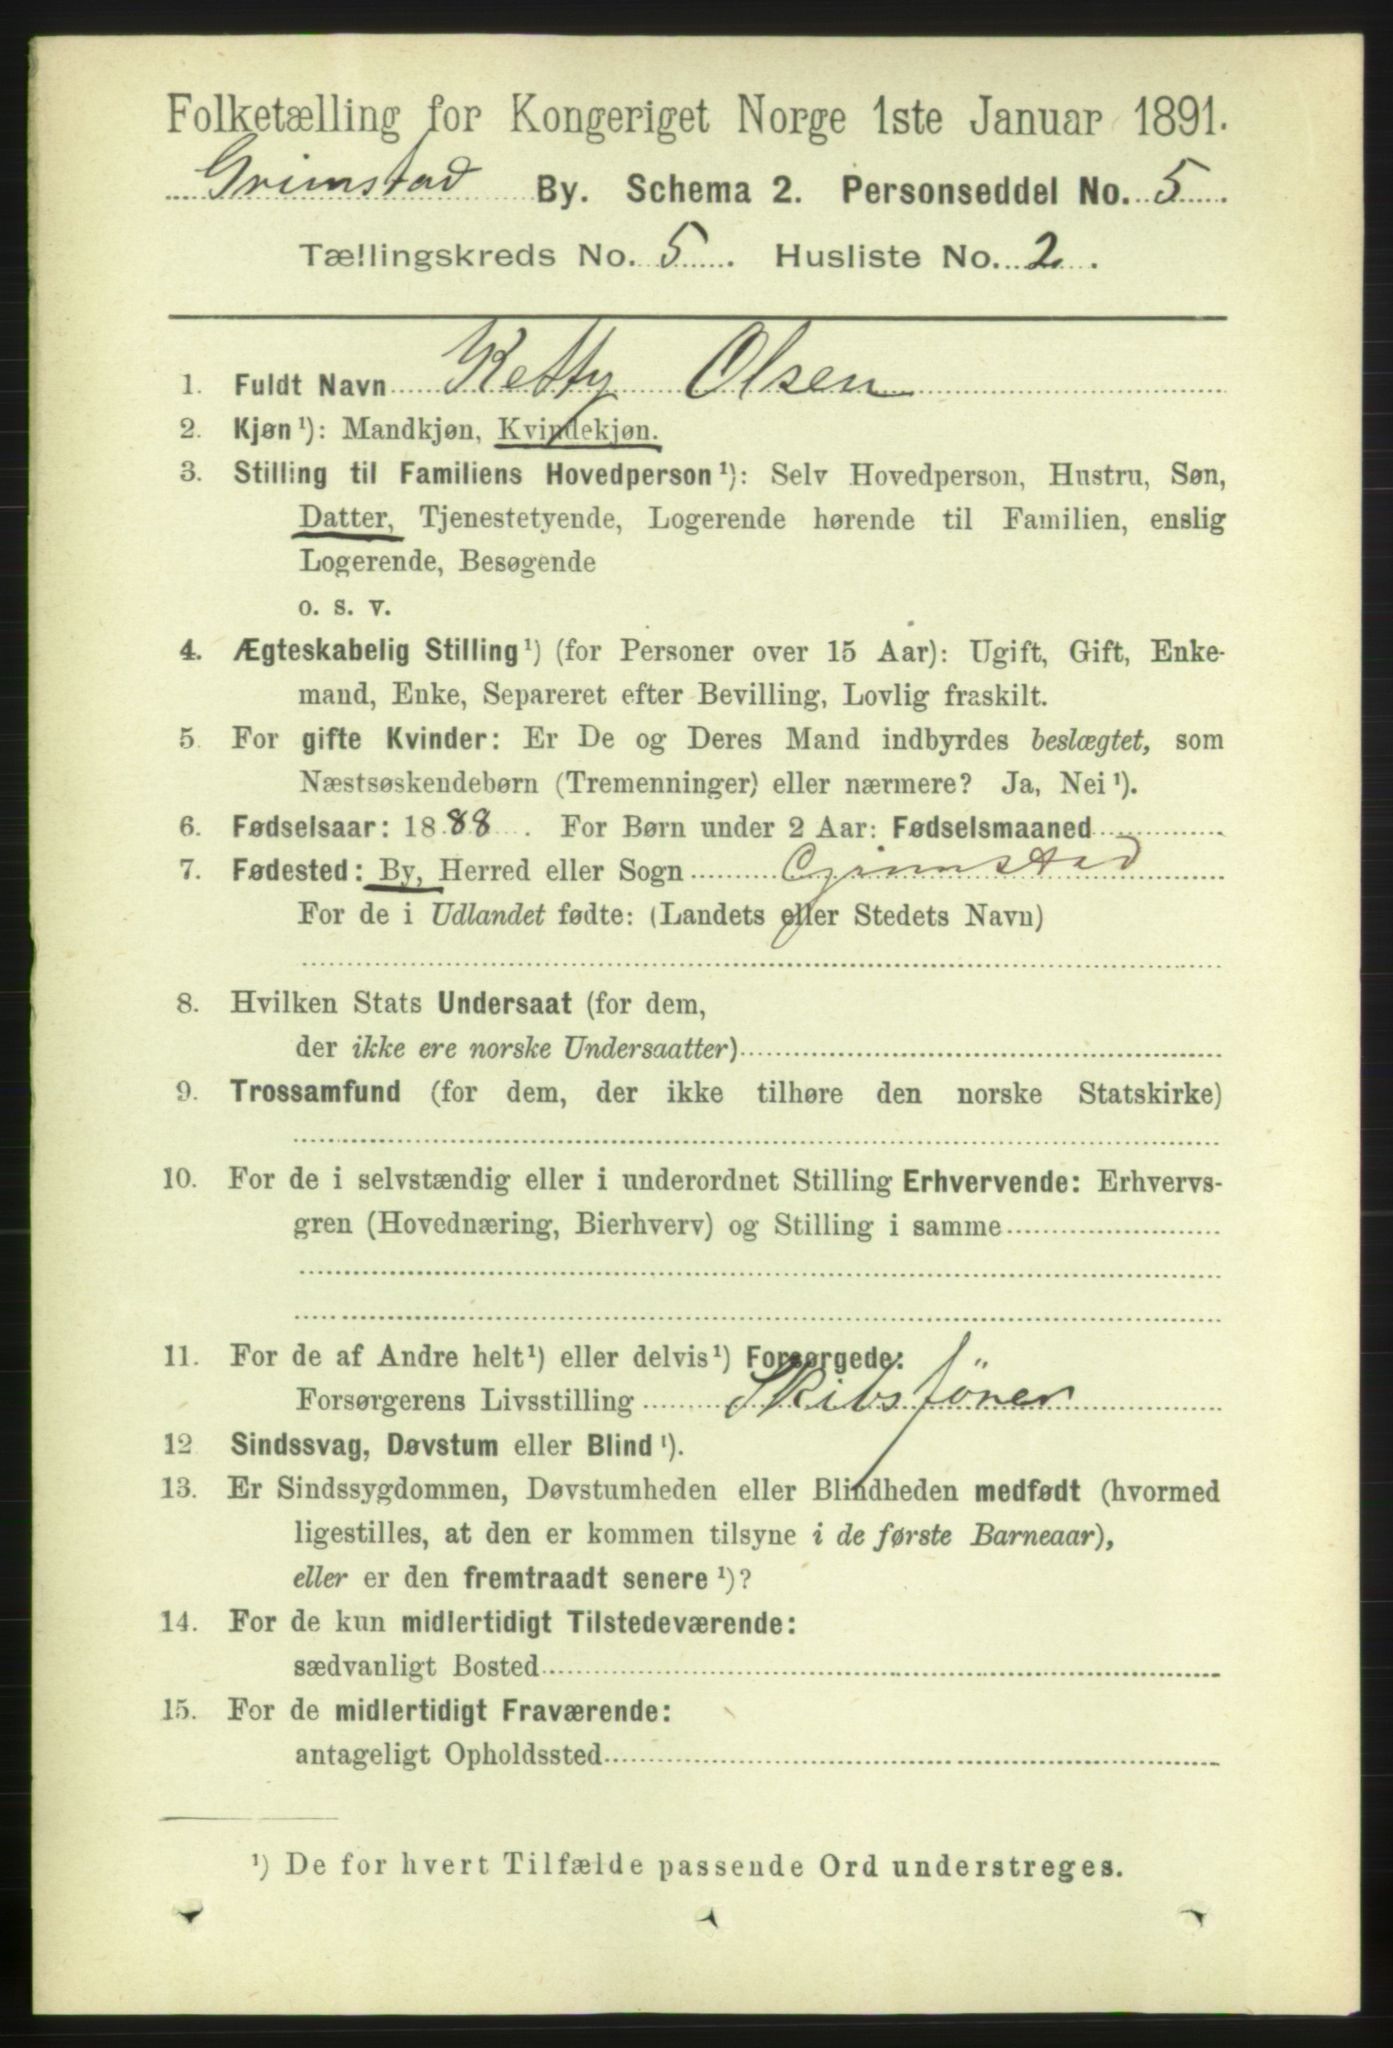 Folketælling for Kongeriget Norge 1ste Januar 1891.
Grimstad By. Schema 2. Personseddel No. 5
Tællingskreds No. 5. Husliste No. 2.
1. Fuldt Navn Ketty Olsen
2. Kjøn ¹): Mandkjøn, Kvindekjøn.
3. Stilling til Familiens Hovedperson ¹): Selv Hovedperson, Hustru, Søn,
Datter, Tjenestetyende, Logerende hørende til Familien, enslig
Logerende, Besøgende
o. s. v.
4. Ægteskabelig Stilling ¹) (for Personer over 15 Aar): Ugift, Gift, Enke-
mand, Enke, Separeret efter Bevilling, Lovlig fraskilt.
5. For gifte Kvinder: Er De og Deres Mand indbyrdes beslægtet, som
Næstsøskendebørn (Tremenninger) eller nærmere? Ja, Nei ¹).
6. Fødselsaar: 1888. For Børn under 2 Aar: Fødselsmaaned
7. Fødested: By, Herred eller Sogn Grimstad
For de i Udlandet fødte: (Landets eller Stedets Navn)
8. Hvilken Stats Undersaat (for dem,
der ikke ere norske Undersaatter)
9. Trossamfund (for dem, der ikke tilhøre den norske Statskirke)
10. For de i selvstændig eller i underordnet Stilling Erhvervende: Erhvervs-
gren (Hovednæring, Bierhverv) og Stilling i samme
11. For de af Andre helt ¹) eller delvis ¹) Forsørgede:
Forsørgerens Livsstilling Skibsföner
12 Sindssvag, Døvstum eller Blind ¹).
13. Er Sindssygdommen, Døvstumheden eller Blindheden medfødt (hvormed
ligestilles, at den er kommen tilsyne i de første Barneaar),
eller er den fremtraadt senere ¹)?
14. For de kun midlertidigt Tilstedeværende:
sædvanligt Bosted
15. For de midlertidigt Fraværende:
antageligt Opholdssted
¹) De for hvert Tilfælde passende Ord understreges.